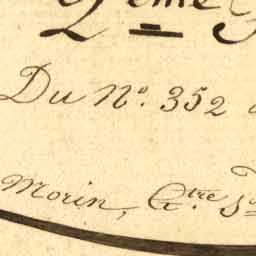 2ème
Du N.º 352
Morin, G.tre